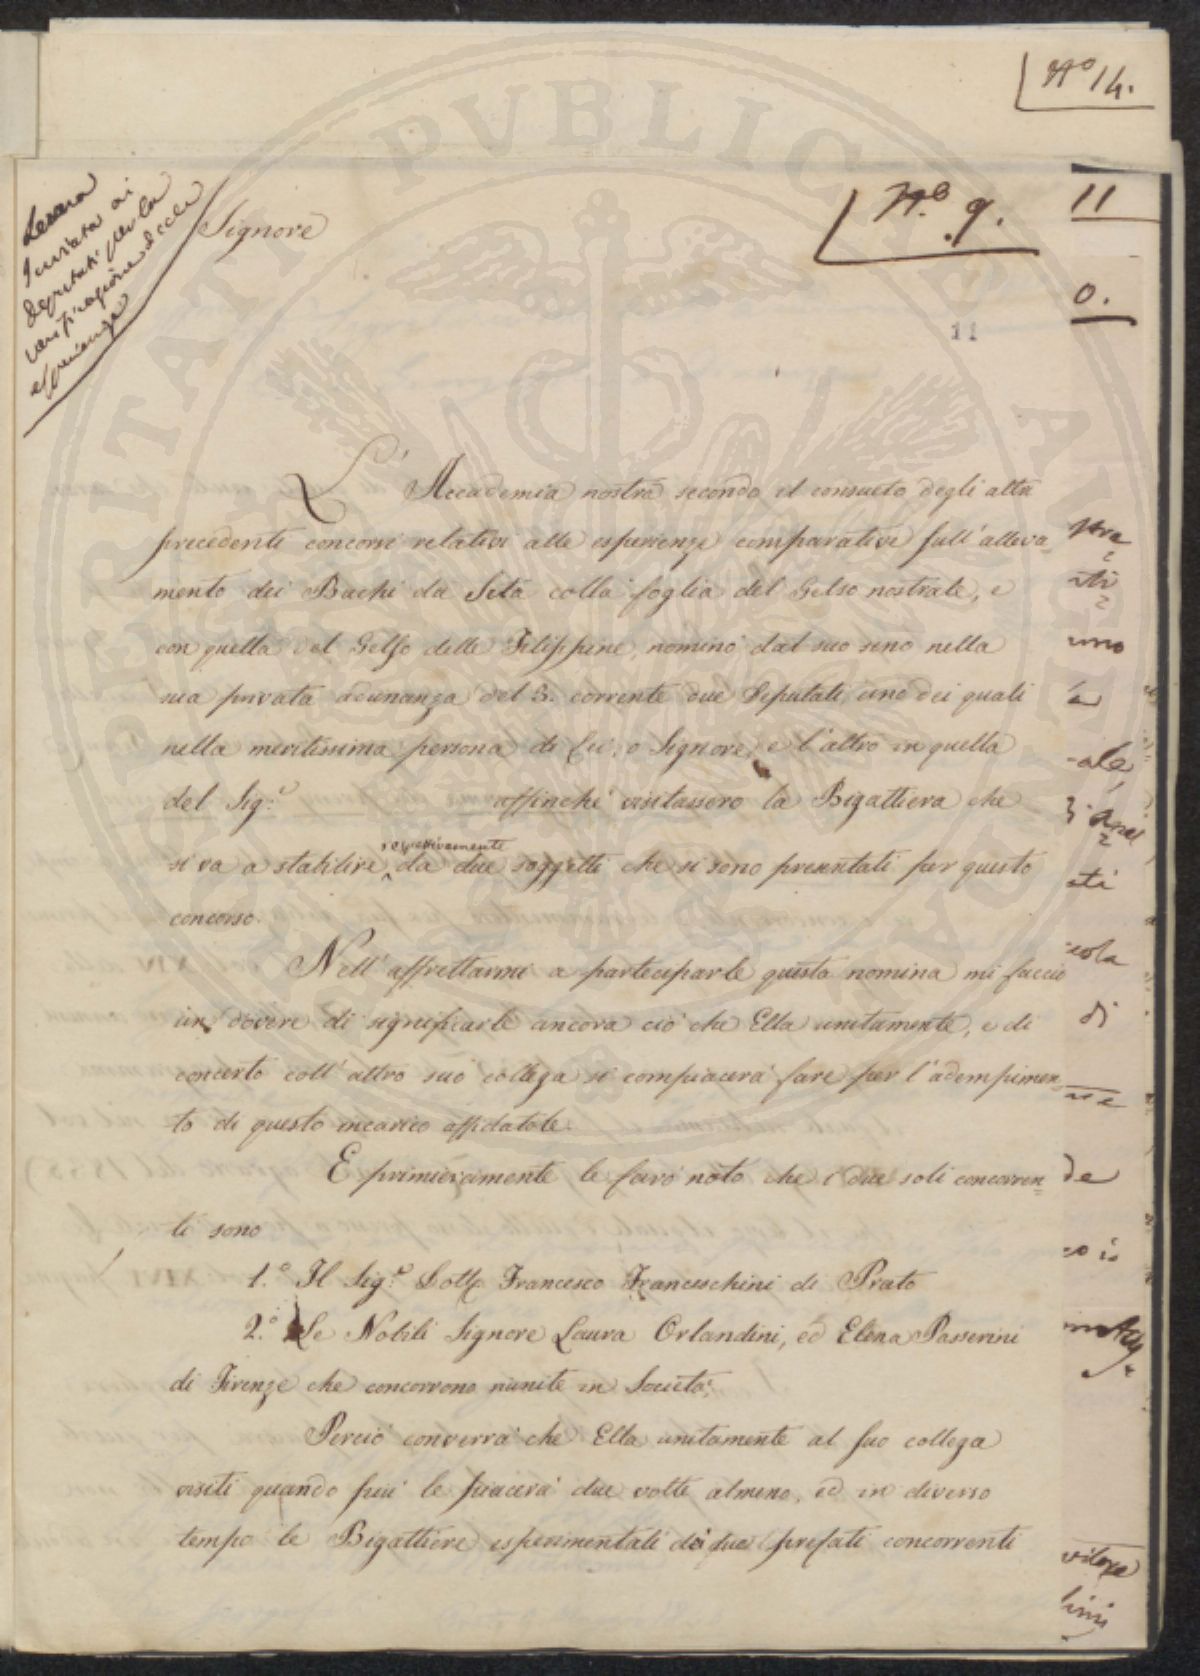 N.o 14.
N.o 9.
11
0.
11
Lettera
Inviata ai
deputati per la
verificazione delle
esperienze
Signore
L'Accademia nostra secondo il consueto degli altri
precedenti concorsi relativi alle esperienze comparative sull'alleva=
mento dei Bachi da Seta colla foglia del Gelso nostrale, e
con quella del Gelso delle Filippine, nominò dal suo seno nella
sua privata adunanza del 3. corrente due Deputati, uno dei quali
nella meritissima persona di Lei, o Signore, e l'altro in quella
del Sig.r affinchè visitassero la Bigattiera che
si va a stabilire respettivamente da due soggetti che si sono presentati per questo
concorso.
Nell'affrettarmi a parteciparle questa nomina mi faccio
un dovere di significarle ancora ciò che Ella unitamente, e di
concerto coll'altro suo collega si compiacerà fare per l'adempimen=
to di questo incarico affidatole.
E primieramente le farò noto che i due soli concorren=
ti sono
1.o Il Sig.r Dott. Francesco Franceschini di Prato
2.o Le Nobili Signore Laura Orlandini, ed Elena Passerini
di Firenze che concorrono riunite in Società;
Perciò converrà che Ella unitamente al suo collega
visiti quando più le piacerà due volte almeno, ed in diverso
tempo le Bigattiere esperimentali dei due prefati concorrenti
uno
ale,
di
de